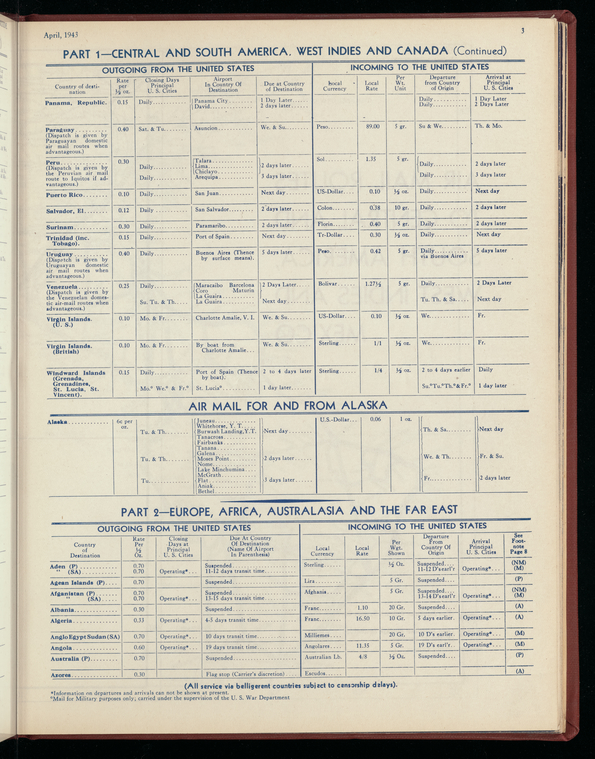 April, 1943
3
PART 1—CENTRAL AND SOUTH AMERICA. WEST INDIES AND CANADA (Continued)
OUTGOING FROM THE UNITED STATES INCOMING TO THE UNITED STATES
Country of desti-nation Rate per ½ oz. Closing Days Principal U. S. Cities Airport In Country Of Destination Due at Country of Destination Local Currency Local Rate Per Wt. Unit Departure from Country of Origin Arrival at Principal U. S. Cities
Panama, Republic. 0.15 Daily Panama City 1 Day Later Daily 1 Day Later
David 2 days later Daily 2 Days Later
Paraguay 0.40 Sat. & Tu. Asuncion We. & Su. Peso 89.00 5 gr. Su & We. Th. & Mo.
(Dispatch is given by
Paraguayan domestic
air mail routes when
advantageous.)
Peru 0.30 Talara Sol 1.35 5 gr.
(Dispatch is given by Daily Lima 2 days later Daily 2 days later
the Peruvian air mail Chiclayo
route to Iquitos if ad- Daily Arequipa 3 days later Daily 3 days later
vantageous.)
Puerto Rico 0.10 Daily San Juan Next day US-Dollar 0.10 ½ oz. Daily Next day
Salvador, El 0.12 Daily San Salvador 2 days later Colon 0.38 10 gr. Daily 2 days later
Surinam 0.30 Daily Paramaribo 2 days later Florin 0.40 5 gr. Daily 2 days later
Trinidad (inc. Tobago). 0.15 Daily Port of Spain Next day Tr-Dollar 0.30 ½ oz. Daily Next day
Uruguay 0.40 Daily Buenos Aires (Thence by surface means). 5 days later Peso 0.42 5 gr. Daily via Buenos Aires 5 days later
(Dispatch is given by
Uruguayan domestic
air mail routes when
advantageous.)
Venezuela 0.25 Daily Maracaibo Barcelona 2 Days Later Bolivar 1.27½ 5 gr. Daily 2 Days Later
(Dispatch is given by Coro Maturin
the Venezuelan domes- La Guaira
tic air-mail routes when Su. Tu. & Th. La Guaira Next day Tu. Th. & Sa. Next day
advantageous.)
Virgin Islands. (U. S.) 0.10 Mo. & Fr. Charlotte Amalie, V. I. We. & Su. US-Dollar 0.10 ½ oz. We. Fr.
Virgin Islands. (British) 0.10 Mo. & Fr. By boat from Charlotte Amalie We. & Su. Sterling 1/1 ½ oz. We. Fr.
Windward Islands 0.15 Daily Port of Spain (Thence by boat). 2 to 4 days later Sterling 1/4 ½ oz. 2 to 4 days earlier Daily
(Grenada,
Grenadines,
St. Lucia, St. Vincent). Mo.ᵃ We.ᵃ & Fr.ᵃ St. Luciaᵃ 1 day later Su.ᵃTu.ᵃTh.ᵃ&Fr.ᵃ 1 day later
AIR MAIL FOR AND FROM ALASKA
Alaska 6c per oz. Juneau U.S.-Dollar 0.06 1 oz.
Whitehorse, Y. T.
Tu. & Th. Burwash Landing, Y.T. Next day Th. & Sa. Next day
Tanacross
Fairbanks
Tanana
Galena
Tu. & Th. Moses Point 2 days later We. & Th. Fr. & Su.
Nome
Lake Minchumina
McGrath
Tu. Flat 3 days later Fr. 2 days later
Aniak
Bethel
PART 2—EUROPE, AFRICA, AUSTRALASIA AND THE FAR EAST
OUTGOING FROM THE UNITED STATES INCOMING TO THE UNITED STATES
Country of Destination Rate Per ½ Oz. Closing Days at Principal U. S. Cities Due At Country Of Destination (Name Of Airport In Parenthesis) Local Currency Local Rate Per Wgt. Shown Departure From Country Of Origin Arrival Principal U. S. Cities See Foot-note Page 8
Aden (P) 0.70 Suspended Sterling ½ Oz. Suspended (NM)
" (SA) 0.70 Operating* 11-12 days transit time 11-12 D'searl'r Operating* (M)
Agean Islands (P) 0.70 Suspended Lira 5 Gr. Suspended (P)
Afganistan (P) 0.70 Suspended Afghania 5 Gr. Suspended (NM)
" (SA) 0.70 Operating* 13-15 days transit time 13-14 D'searl'r Operating* (M)
Albania 0.30 Suspended Franc 1.10 20 Gr. Suspended (A)
Algeria 0.35 Operating* 4-5 days transit time Franc 16.50 10 Gr. 5 days earlier Operating* (A)
Anglo Egypt Sudan (SA) 0.70 Operating* 10 days transit time Milliemes 20 Gr. 10 D's earlier Operating* (M)
Angola 0.60 Operating* 19 days transit time Angolares 11.35 5 Gr. 19 D's earl'r. Operating* (M)
Australia (P) 0.70 Suspended Australian Lb. 4/8 ½ Oz. Suspended (P)
Azores 0.30 Flag stop (Carrier's discretion) Escudos (A)
(All service via belligerent countries subject to censorship delays).
*Information on departures and arrivals can not be shown at present.
ᵃMail for Military purposes only; carried under the supervision of the U. S. War Department